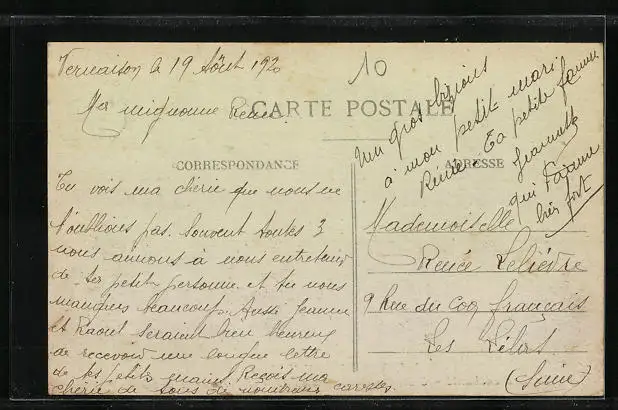 Vernaison le 19 Août 1920
10
Ma mignonne Renée.
CARTE POSTALE
CORRESPONDANCE
ADRESSE
Tu vois ma chérie que nous ne
t'oublions pas. Souvent toutes 3
nous aimons à nous entretenir
de ta petite personne et tu nous
manques beaucoup. Aussi Jeanne
et Raoul seraient bien heureux
de recevoir une longue lettre
de tes petits Reçois ma
chérie de tous de nombreuses caresses.
Un gros bizious
à mon petit mari
Renée. Ta petite famme
Jeannette
qui t'aimme
bien fort
Mademoiselle
Renée Lelièvre
9 Rue du Coq français
Les Lilas
(Seine)